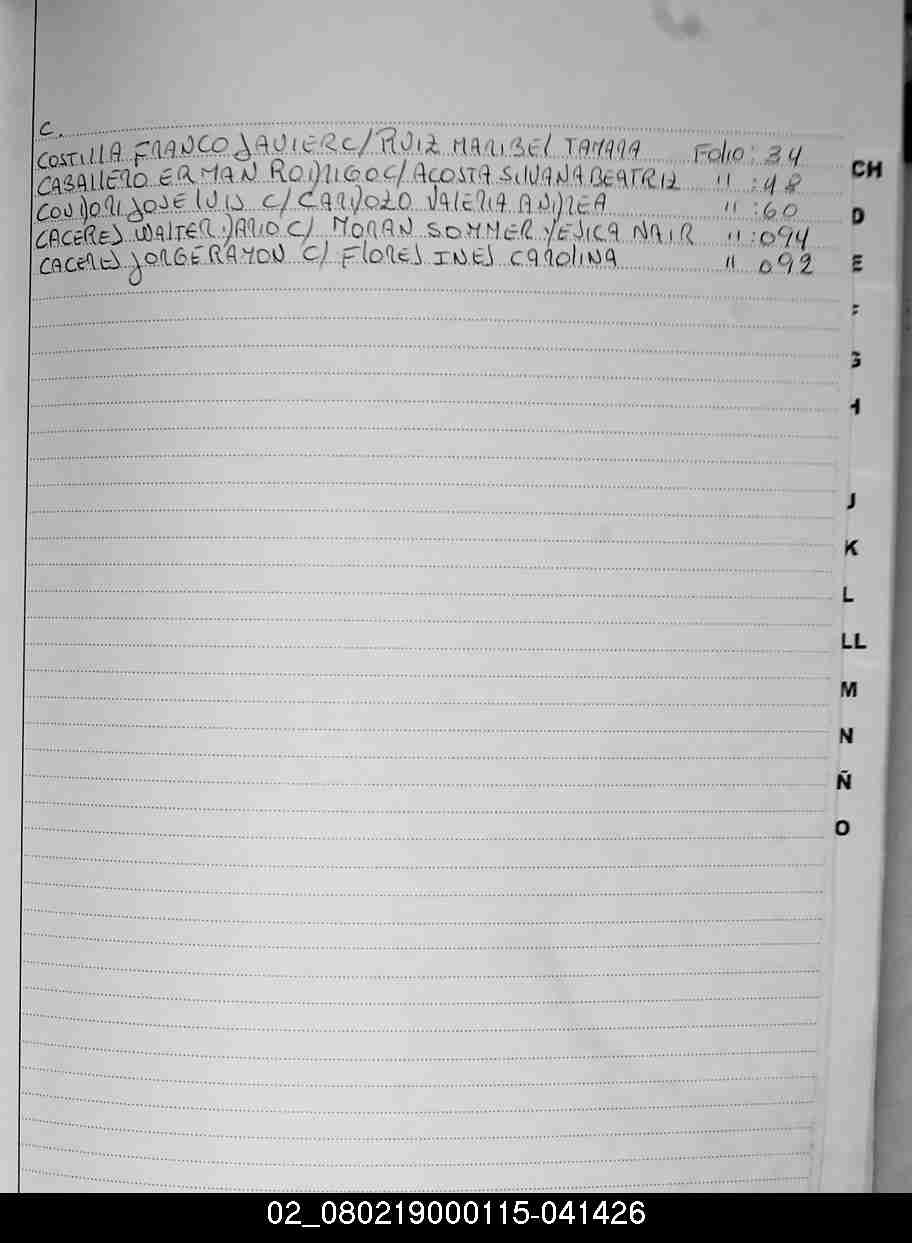 C.
COSTILLA FRANCO JAVIER C/ RUIZ MARIBEL TAMARA Folio: 34
CABALLERO ERMAN RODRIGO C/ ACOSTA SILVANA BEATRIZ " : 48
CONDORI JOSE LUIS C/ CARDOZO VALERIA ANDREA " : 60
CACERES WALTER DARIO C/ MORAN SOMMER YESICA NAIR " : 094
CACERES JORGE RAMON C/ FLORES INES CAROLINA " 092
CH
D
E
F
G
H
J
K
L
LL
M
N
Ñ
O
02_080219000115-041426